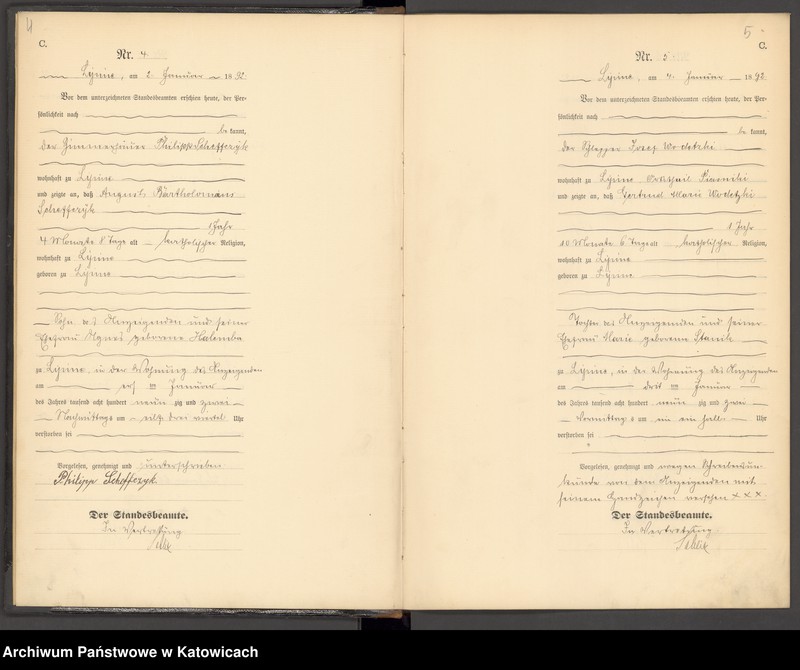 4
C.
Nr. 4.
Lysine, am 2. Januar 1892.
Vor dem unterzeichneten Standesbeamten erschien heute, der Per-
sönlichkeit nach
be kannt,
der Zimmerhäuer Philipp Scheffczyk
wohnhaft zu
und zeigte an, daß August Bartholomäus
Scheffczyk
1 Jahr
4 Monate 8 Tage alt katholischer Religion,
wohnhaft zu
geboren zu
Sohn des Anzeigenden und seiner
Ehefrau Agnes geborene
zu in der Wohnung des Anzeigenden
am ten Januar
des Jahres tausend acht hundert neun zig und zwei
Nachmittags um drei viertel Uhr
verstorben sei
Vorgelesen, genehmigt und unterschrieben
Philipp Scheffczyk
Der Standesbeamte.
In Vertretung
5
C.
Nr. 5
am 4. Januar 1892.
Vor dem unterzeichneten Standesbeamten erschien heute, der Per-
sönlichkeit nach
be kannt,
der Schlepper Josef Wodetzki
wohnhaft zu
und zeigte an, daß Gertrud Marie Wodetzki
1 Jahr
10 Monate 6 Tage alt katholischer Religion,
wohnhaft zu
geboren zu
Tochter des Anzeigenden und seiner
Ehefrau Marie geborene Stanik
zu in der Wohnung des Anzeigenden
am ten Januar
des Jahres tausend acht hundert neun zig und zwei
Vormittags um ein halb Uhr
verstorben sei
Vorgelesen, genehmigt und wegen Schreibensun-
kunde von dem Anzeigenden mit
seinem Handzeichen versehen × × ×
Der Standesbeamte.
In Vertretung
Archiwum Państwowe w Katowicach